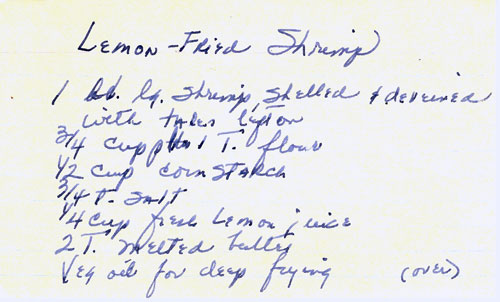 Lemon-Fried Shrimp
1 lb. lg. shrimp, shelled & deveined
with tails left on
3/4 cup plus 1 T. flour
1/2 cup cornstarch
3/4 t. salt
1/4 cup fresh lemon juice
2 T. melted butter
Veg oil for deep frying (over)